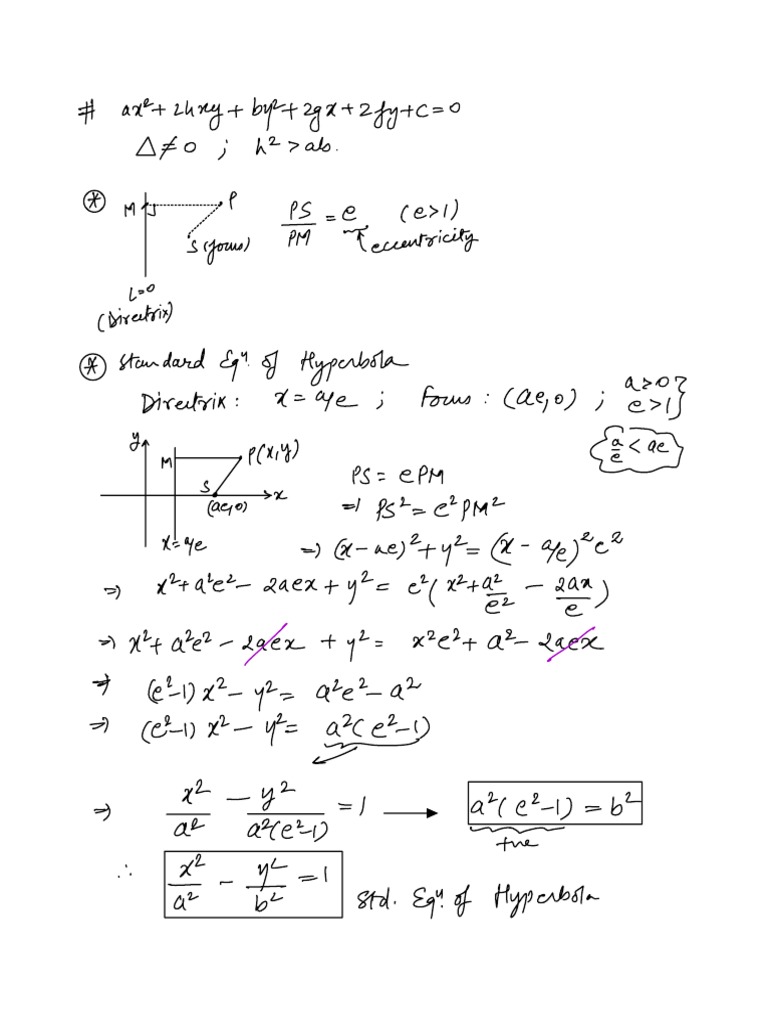 # ax²+2hxy+by²+2gx+2fy+c=0
Δ≠0 ; h²>ab.
* M P PS/PM = e (e>1)
S(focus) eccentricity
L=0
(Directrix)
* Standard Eqⁿ. of Hyperbola
Directrix : x=a/e ; Focus : (ae,0) ; a>0 e>1}
a/e < ae
y M P(x,y)
S x
(ae,0)
x=a/e
PS = ePM
=> PS² = e²PM²
=> (x-ae)²+y² = (x-a/e)²e²
=> x²+a²e²-2aex+y² = e²(x²+a²/e² - 2ax/e)
=> x²+a²e²-2aex+y² = x²e²+a²-2aex
=> (e²-1)x²-y² = a²e²-a²
=> (e²-1)x²-y² = a²(e²-1)
=> x²/a² - y²/a²(e²-1) = 1 → a²(e²-1) = b²
+ve
∴ x²/a² - y²/b² = 1 Std. Eqⁿ. of Hyperbola